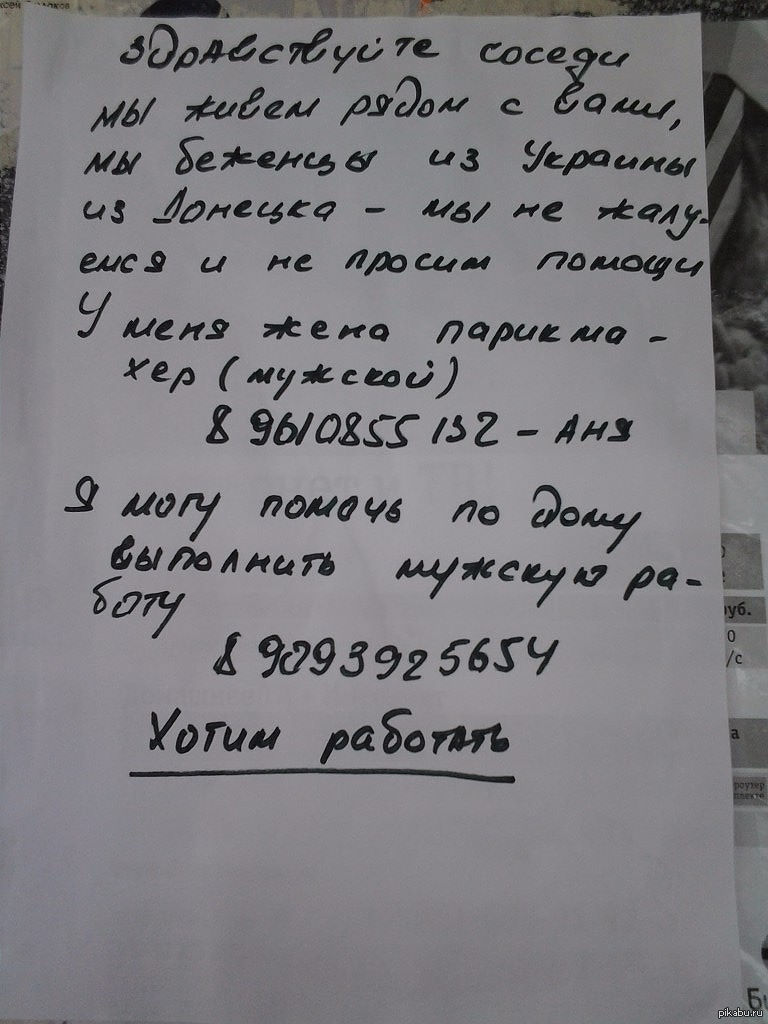 здравствуйте соседи
мы живем рядом с вами,
мы беженцы из Украины
из Донецка - мы не жалу-
емся и не просим помощи
У меня жена парикма -
хер (мужской)
8 9610855 132 - Аня
Я могу помочь по дому
выполнить мужскую ра-
боту
8 9093925654
Хотим работать
руб.
0
/с
а
pikabu.ru